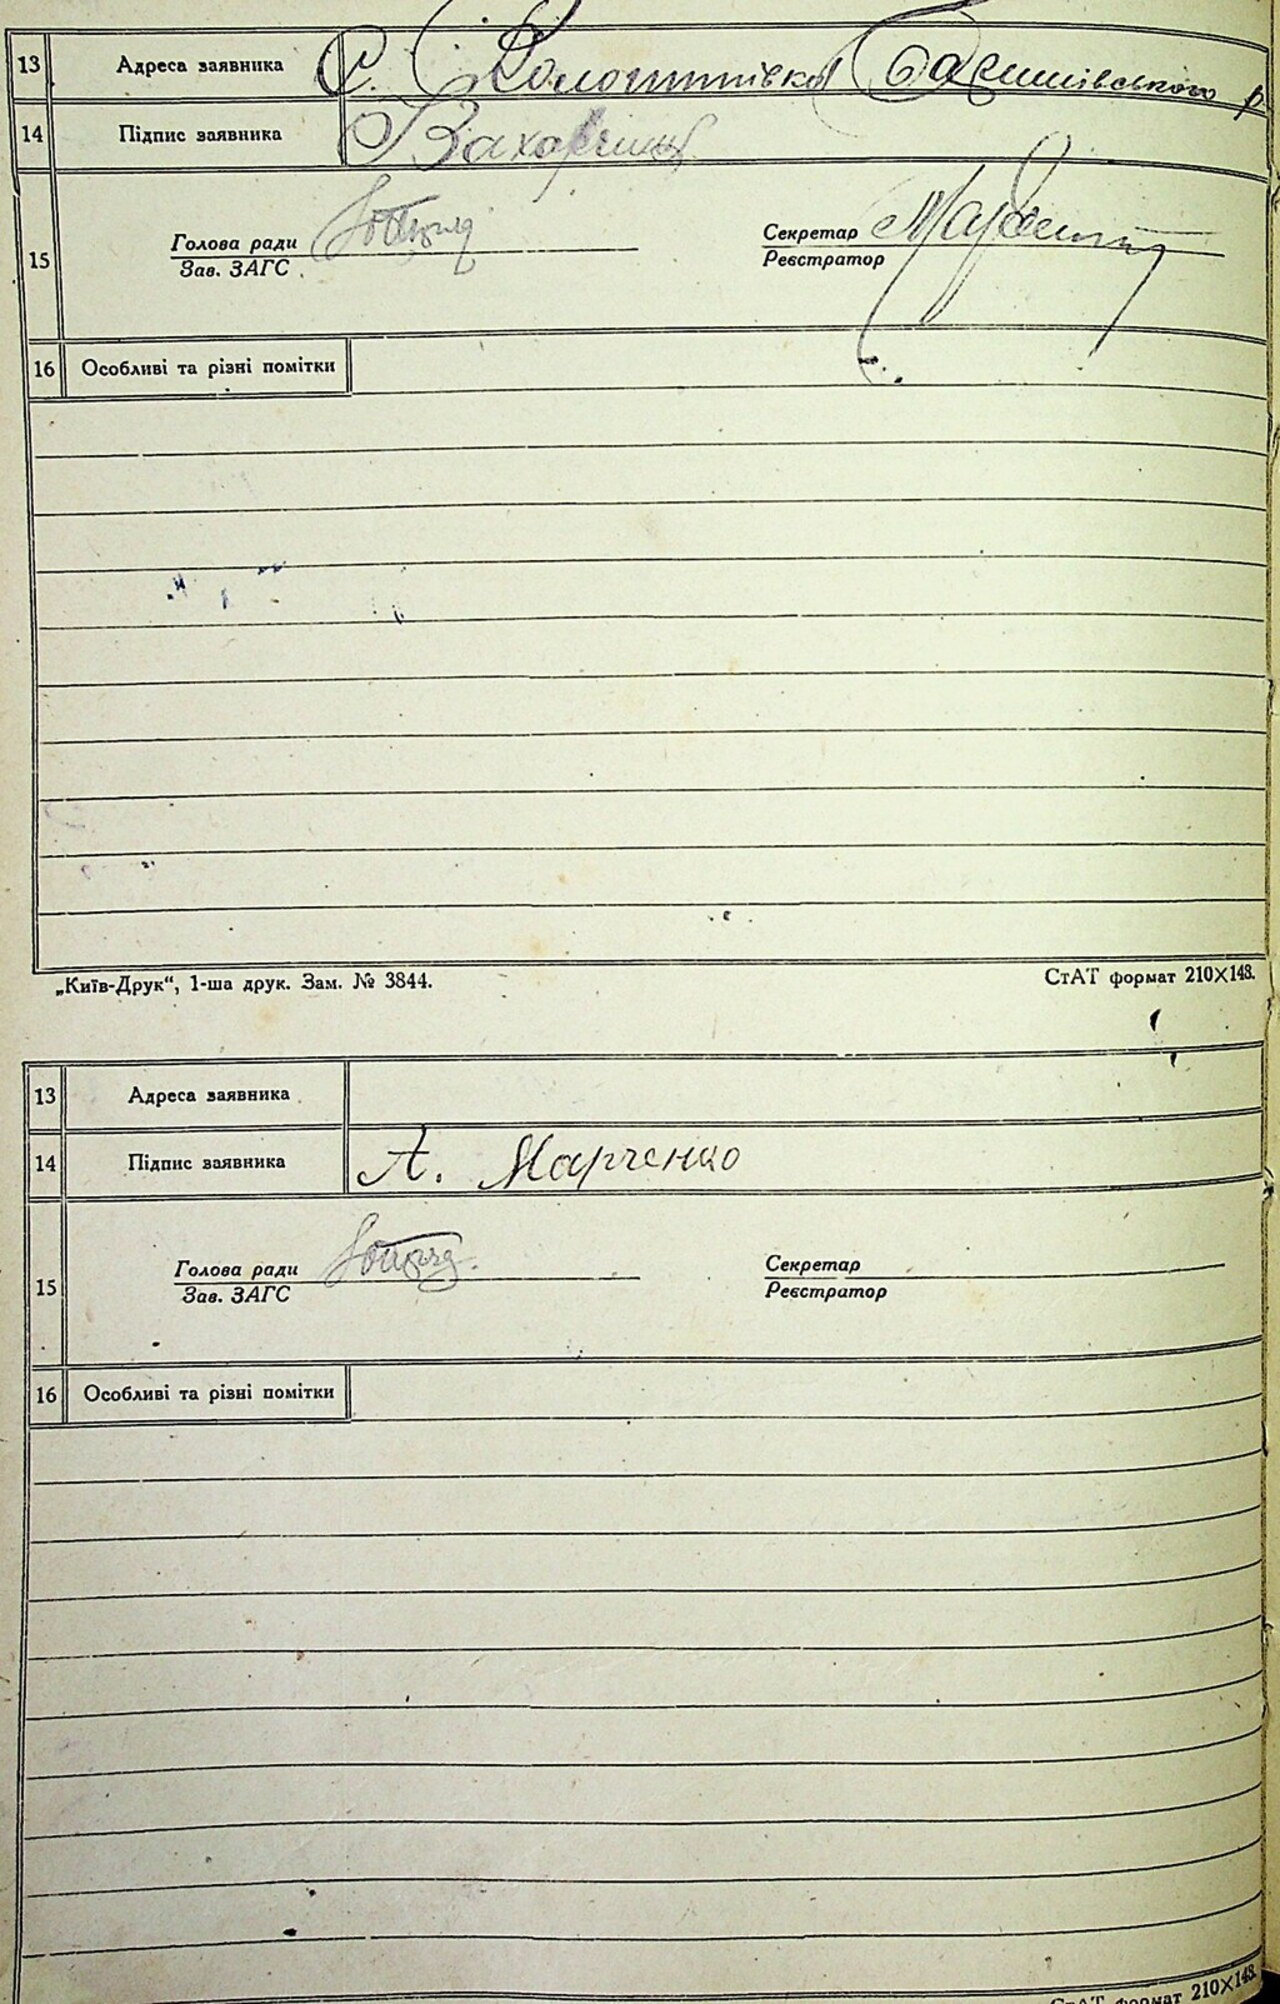 13 Адреса заявника С.
14 Підпис заявника
15 Голова ради Секретар
Зав. ЗАГС Реєстратор
16 Особливі та різні помітки
„Київ-Друк“, 1-ша друк. Зам. № 3844. СтАТ формат 210×148.
13 Адреса заявника
14 Підпис заявника А. Марченко
15 Голова ради Секретар
Зав. ЗАГС Реєстратор
16 Особливі та різні помітки
СтАТ формат 210×148.